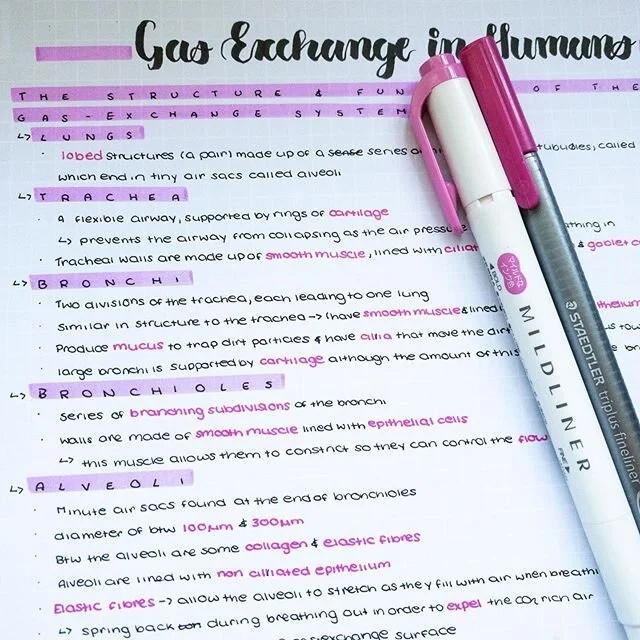 Gas Exchange in Humans
THE STRUCTURE & FUN OF THE
GAS-EXCHANGE SYSTEM
↳ LUNGS
· lobed structures (a pair) made up of a sense series of tubules, called
which end in tiny air sacs called alveoli
↳ TRACHEA
· A flexible airway, supported by rings of cartilage
↳ prevents the airway from collapsing as the air pressu athing in
· Tracheal walls are made up of smooth muscle, lined with cilia & goblet c
↳ BRONCHI
· Two divisions of the trachea, each leading to one lung
· Similar in structure to the trachea → (have smooth muscle & lined thelium
· Produce mucus to trap dirt particles & have cilia that move the dirt
· large bronchi is supported by cartilage although the amount of this
↳ BRONCHIOLES
· series of branching subdivisions of the bronchi
· walls are made of smooth muscle lined with epithelial cells
↳ this muscle allows them to constrict so they can control the flow
↳ ALVEOLI
· Minute air sacs found at the end of bronchioles
· diameter of btw 100μm & 300μm
· Btw the alveoli are some collagen & elastic fibres
· Alveoli are lined with non ciliated epithelium
· Elastic fibres → allow the alveoli to stretch as they fill with air when breathi
↳ spring back during breathing out in order to expel the CO2 rich air
exchange surface
マイルドな
インク色
BOLD
MILDLINER
FINE
STAEDTLER triplus fineliner